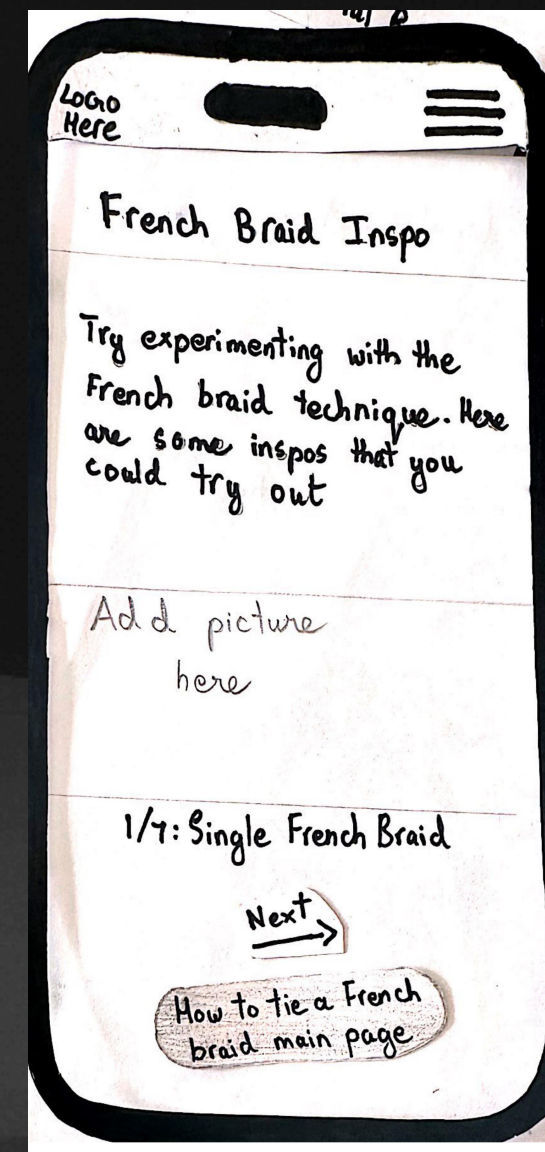 Logo
Here
French Braid Inspo
Try experimenting with the
French braid technique. Here
are some inspos that you
could try out
Add picture
here
1/7: Single French Braid
Next
How to tie a French
braid main page